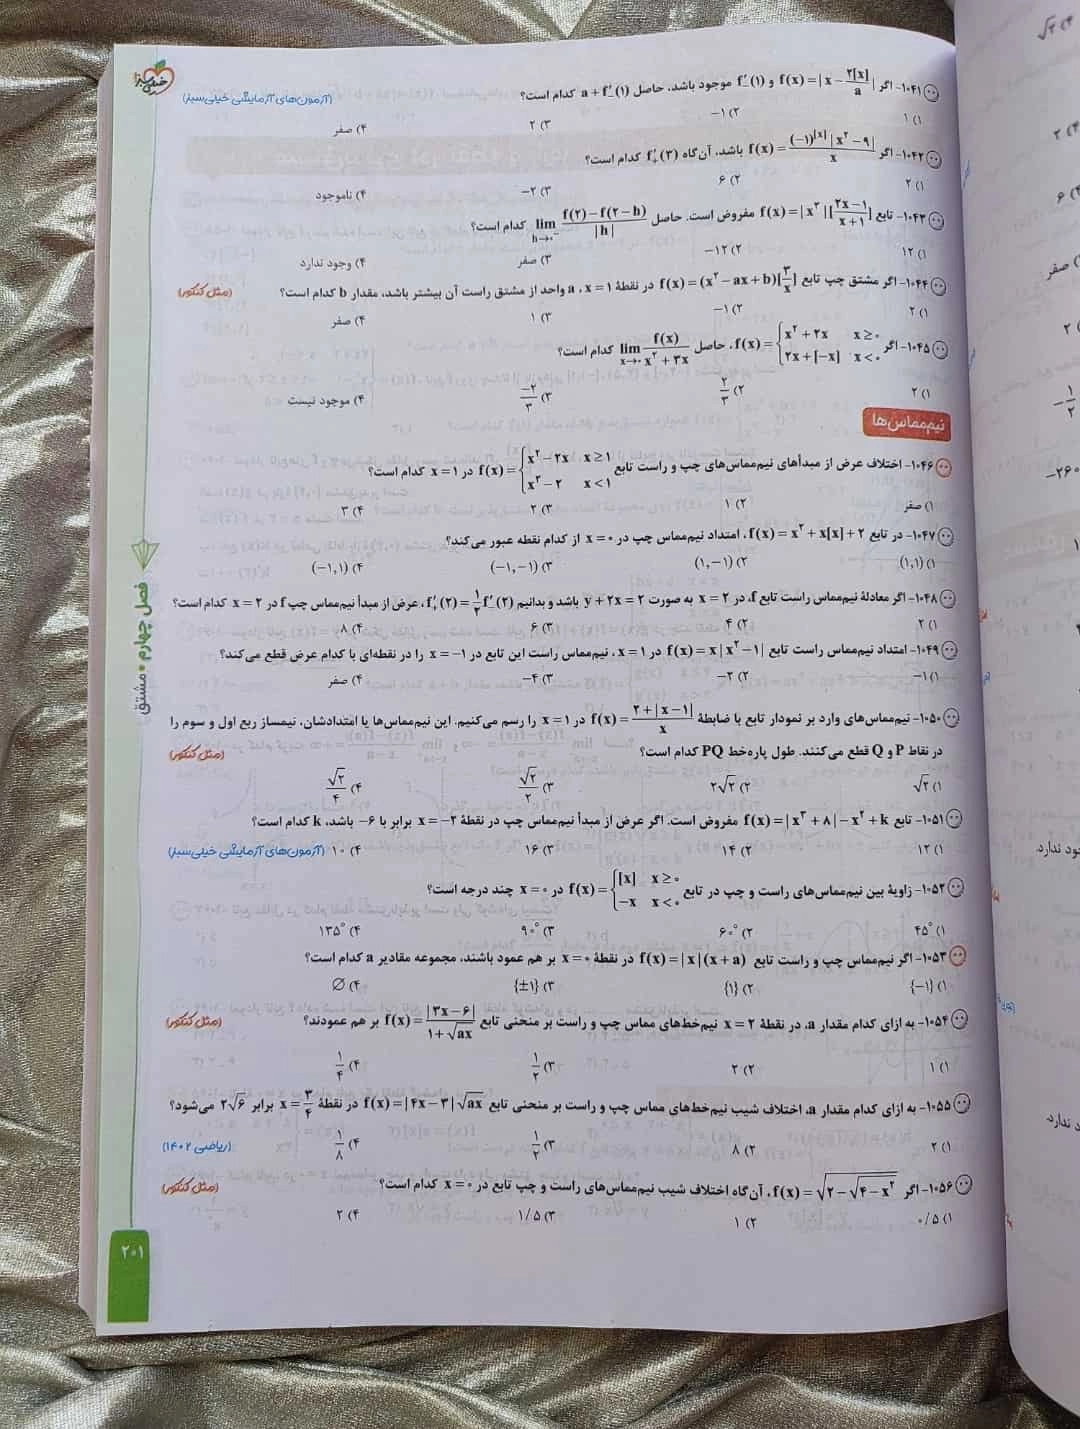 خیلی سبز
۱۰۴۱- اگر f(x) = |x − ۲[x]/a| و f′₋(۱) موجود باشد، حاصل a + f′₋(۱) کدام است؟ (آزمون‌های آزمایشی خیلی‌سبز)
۱) ۱ ۲) −۱ ۳) ۲ ۴) صفر
۱۰۴۲- اگر f(x) = (−۱)^[x] |x² − ۹| / x باشد، آن‌گاه f′₊(۳) کدام است؟
۱) ۲ ۲) ۶ ۳) −۲ ۴) ناموجود
۱۰۴۳- تابع f(x) = |x³|[(۲x−۱)/(x+۱)] مفروض است. حاصل lim h→۰⁻ (f(۲)−f(۲−h))/|h| کدام است؟
۱) ۱۲ ۲) −۱۲ ۳) صفر ۴) وجود ندارد
۱۰۴۴- اگر مشتق چپ تابع f(x) = (x² − ax + b)[۳/x] در نقطهٔ x = ۱، a واحد از مشتق راست آن بیشتر باشد، مقدار b کدام است؟ (مثل کنکور)
۱) ۲ ۲) −۱ ۳) ۱ ۴) صفر
۱۰۴۵- اگر f(x) = { x² + ۲x x ≥ ۰ ; ۲x + [−x] x < ۰، حاصل lim x→۰ f(x)/(x² + ۳x) کدام است؟
۱) ۲ ۲) ۲/۳ ۳) −۲/۳ ۴) موجود نیست
نیم‌مماس‌ها
۱۰۴۶- اختلاف عرض از مبدأهای نیم‌مماس‌های چپ و راست تابع f(x) = { x² − ۲x x ≥ ۱ ; x³ − ۲ x < ۱ در x = ۱ کدام است؟
۱) صفر ۲) ۱ ۳) ۲ ۴) ۳
۱۰۴۷- در تابع f(x) = x² + x[x] + ۲، امتداد نیم‌مماس چپ در x = ۰ از کدام نقطه عبور می‌کند؟
۱) (۱,۱) ۲) (۱,−۱) ۳) (−۱,−۱) ۴) (−۱,۱)
۱۰۴۸- اگر معادلهٔ نیم‌مماس راست تابع f، در x = ۲ به صورت y + ۲x = ۲ باشد و بدانیم f′₊(۲) = ۱/۲ f′₋(۲)، عرض از مبدأ نیم‌مماس چپ f در x = ۲ کدام است؟
۱) ۲ ۲) ۴ ۳) ۶ ۴) ۸
۱۰۴۹- امتداد نیم‌مماس راست تابع f(x) = x|x² − ۱| در x = ۱، نیم‌مماس راست این تابع در x = −۱ را در نقطه‌ای با کدام عرض قطع می‌کند؟
۱) −۱ ۲) −۲ ۳) −۴ ۴) صفر
۱۰۵۰- نیم‌مماس‌های وارد بر نمودار تابع با ضابطهٔ f(x) = (۲ + |x − ۱|)/x در x = ۱ را رسم می‌کنیم. این نیم‌مماس‌ها یا امتدادشان، نیمساز ربع اول و سوم را
در نقاط P و Q قطع می‌کنند. طول پاره‌خط PQ کدام است؟ (مثل کنکور)
۱) √۲ ۲) ۲√۲ ۳) √۲/۲ ۴) √۲/۴
۱۰۵۱- تابع f(x) = |x³ + ۸| − x² + k مفروض است. اگر عرض از مبدأ نیم‌مماس چپ در نقطهٔ x = −۲ برابر با −۶ باشد، k کدام است؟
۱) ۱۲ ۲) ۱۴ ۳) ۱۶ ۴) ۱۰ (آزمون‌های آزمایشی خیلی‌سبز)
۱۰۵۲- زاویهٔ بین نیم‌مماس‌های راست و چپ در تابع f(x) = { [x] x ≥ ۰ ; −x x < ۰ در x = ۰ چند درجه است؟
۱) ۴۵° ۲) ۶۰° ۳) ۹۰° ۴) ۱۳۵°
۱۰۵۳- اگر نیم‌مماس چپ و راست تابع f(x) = |x|(x + a) در نقطهٔ x = ۰ بر هم عمود باشند، مجموعه مقادیر a کدام است؟
۱) {−۱} ۲) {۱} ۳) {±۱} ۴) ∅
۱۰۵۴- به ازای کدام مقدار a، در نقطهٔ x = ۲ نیم‌خط‌های مماس چپ و راست بر منحنی تابع f(x) = |۳x − ۶|/(۱ + √ax) بر هم عمودند؟ (مثل کنکور)
۱) ۱ ۲) ۲ ۳) ۱/۲ ۴) ۱/۴
۱۰۵۵- به ازای کدام مقدار a، اختلاف شیب نیم‌خط‌های مماس چپ و راست بر منحنی تابع f(x) = |۴x − ۳|√ax در نقطهٔ x = ۳/۴ برابر ۲√۶ می‌شود؟
۱) ۲ ۲) ۸ ۳) ۱/۲ ۴) ۱/۸ (ریاضی ۱۴۰۲)
۱۰۵۶- اگر f(x) = √(۲ − √(۴ − x²))، آن‌گاه اختلاف شیب نیم‌مماس‌های راست و چپ تابع در x = ۰ کدام است؟ (مثل کنکور)
۱) ۰/۵ ۲) ۱ ۳) ۱/۵ ۴) ۲
فصل چهارم • مشتق
۲۰۱